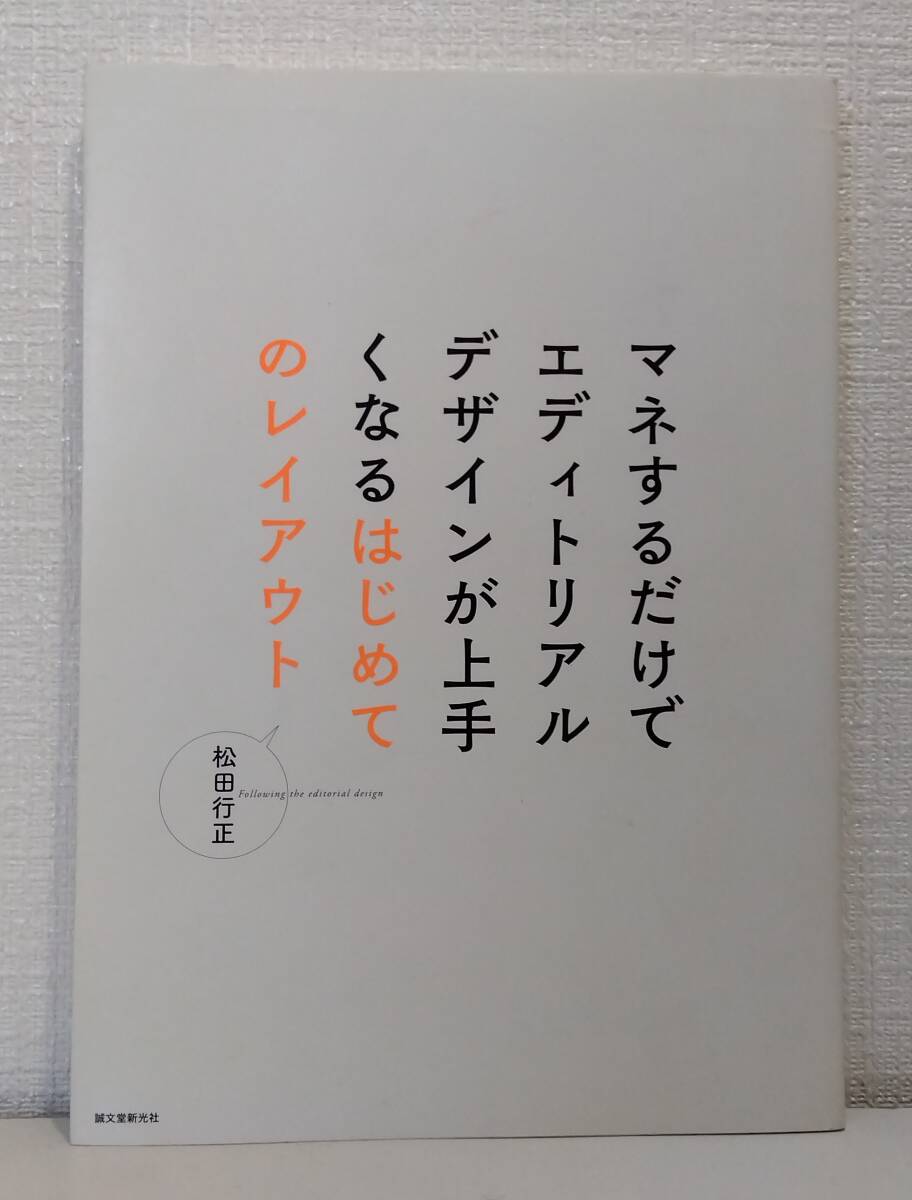 マネするだけで
エディトリアル
デザインが上手
くなるはじめて
のレイアウト
松田行正
Following the editorial design
誠文堂新光社